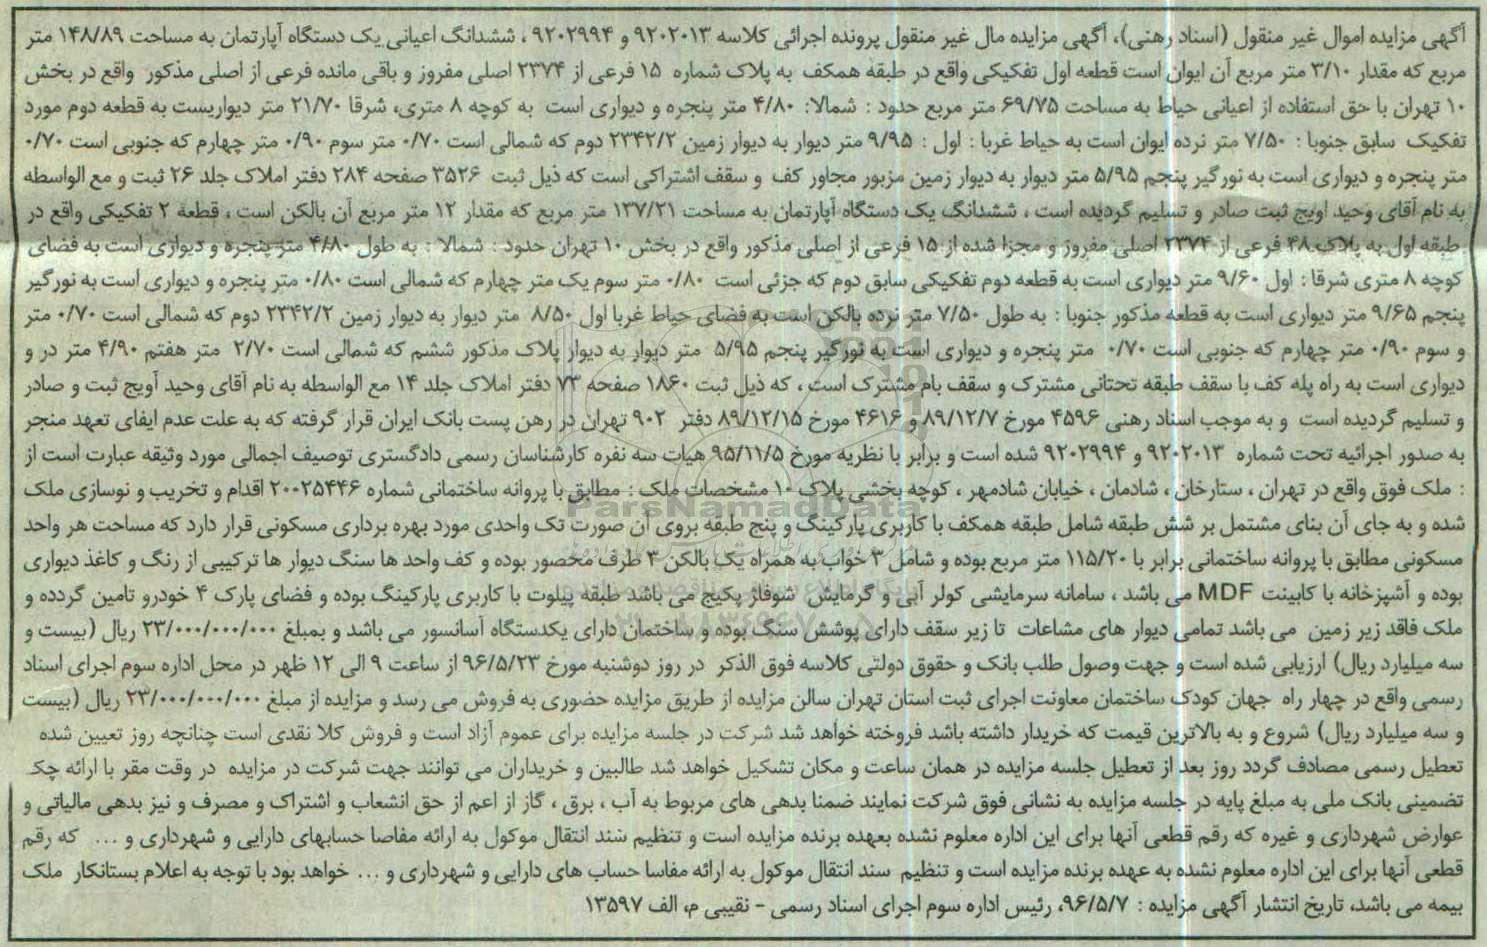 آگهی مزایده اموال غیر منقول (اسناد رهنی)، آگهی مزایده مال غیر منقول پرونده اجرائی کلاسه ۹۲۰۲۰۱۳ و ۹۲۰۲۹۹۴ ، ششدانگ اعیانی یک دستگاه آپارتمان به مساحت ۱۴۸/۸۹ متر
مربع که مقدار ۳/۱۰ متر مربع آن ایوان است قطعه اول تفکیکی واقع در طبقه همکف به پلاک شماره ۱۵ فرعی از ۲۳۷۴ اصلی مفروز و باقی مانده فرعی از اصلی مذکور واقع در بخش
۱۰ تهران با حق استفاده از اعیانی حیاط به مساحت ۶۹/۷۵ متر مربع حدود : شمالا: ۴/۸۰ متر پنجره و دیواری است به کوچه ۸ متری، شرقا ۲۱/۷۰ متر دیواریست به قطعه دوم مورد
تفکیک سابق جنوبا : ۷/۵۰ متر نرده ایوان است به حیاط غربا : اول : ۹/۹۵ متر دیوار به دیوار زمین ۲۳۴۲/۲ دوم که شمالی است ۰/۷۰ متر سوم ۰/۹۰ متر چهارم که جنوبی است ۰/۷۰
متر پنجره و دیواری است به نورگیر پنجم ۵/۹۵ متر دیوار به دیوار زمین مزبور مجاور کف و سقف اشتراکی است که ذیل ثبت ۳۵۲۶ صفحه ۲۸۴ دفتر املاک جلد ۲۶ ثبت و مع الواسطه
به نام آقای وحید اویج ثبت صادر و تسلیم گردیده است ، ششدانگ یک دستگاه آپارتمان به مساحت ۱۳۷/۲۱ متر مربع که مقدار ۱۲ متر مربع آن بالکن است ، قطعه ۲ تفکیکی واقع در
طبقه اول به پلاک ۴۸ فرعی از ۲۳۷۴ اصلی مفروز و مجزا شده از ۱۵ فرعی از اصلی مذکور واقع در بخش ۱۰ تهران حدود : شمالا : به طول ۴/۸۰ متر پنجره و دیواری است به فضای
کوچه ۸ متری شرقا : اول ۹/۶۰ متر دیواری است به قطعه دوم تفکیکی سابق دوم که جزئی است ۰/۸۰ متر سوم یک متر چهارم که شمالی است ۰/۸۰ متر پنجره و دیواری است به نورگیر
پنجم ۹/۶۵ متر دیواری است به قطعه مذکور جنوبا : به طول ۷/۵۰ متر نرده بالکن است به فضای حیاط غربا اول ۸/۵۰ متر دیوار به دیوار زمین ۲۳۴۲/۲ دوم که شمالی است ۰/۷۰ متر
و سوم ۰/۹۰ متر چهارم که جنوبی است ۰/۷۰ متر پنجره و دیواری است به نورگیر پنجم ۵/۹۵ متر دیوار به دیوار پلاک مذکور ششم که شمالی است ۲/۷۰ متر هفتم ۴/۹۰ متر در و
دیواری است به راه پله کف با سقف طبقه تحتانی مشترک و سقف بام مشترک است ، که ذیل ثبت ۱۸۶۰ صفحه ۷۳ دفتر املاک جلد ۱۴ مع الواسطه به نام آقای وحید آویج ثبت و صادر
و تسلیم گردیده است و به موجب اسناد رهنی ۴۵۹۶ مورخ ۸۹/۱۲/۷ و ۴۶۱۶ مورخ ۸۹/۱۲/۱۵ دفتر ۹۰۲ تهران در رهن پست بانک ایران قرار گرفته که به علت عدم ایفای تعهد منجر
به صدور اجرائیه تحت شماره ۹۲۰۲۰۱۳ و ۹۲۰۲۹۹۴ شده است و برابر با نظریه مورخ ۹۵/۱۱/۵ هیات سه نفره کارشناسان رسمی دادگستری توصیف اجمالی مورد وثیقه عبارت است از
: ملک فوق واقع در تهران ، ستارخان ، شادمان ، خیابان شادمهر ، کوچه بخشی پلاک ۱۰ مشخصات ملک : مطابق با پروانه ساختمانی شماره ۲۰۰۲۵۴۴۶ اقدام و تخریب و نوسازی ملک
شده و به جای آن بنای مشتمل بر شش طبقه شامل طبقه همکف با کاربری پارکینگ و پنج طبقه بروی آن صورت تک واحدی مورد بهره برداری مسکونی قرار دارد که مساحت هر واحد
مسکونی مطابق با پروانه ساختمانی برابر با ۱۱۵/۲۰ متر مربع بوده و شامل ۳ خواب به همراه یک بالکن ۳ طرف محصور بوده و کف واحد ها سنگ دیوار ها ترکیبی از رنگ و کاغذ دیواری
بوده و آشپزخانه با کابینت MDF می باشد ، سامانه سرمایشی کولر آبی و گرمایش شوفاژ پکیج می باشد طبقه پیلوت با کاربری پارکینگ بوده و فضای پارک ۴ خودرو تامین گردده و
ملک فاقد زیر زمین می باشد تمامی دیوار های مشاعات تا زیر سقف دارای پوشش سنگ بوده و ساختمان دارای یکدستگاه آسانسور می باشد و بمبلغ ۲۳/۰۰۰/۰۰۰/۰۰۰ ریال (بیست و
سه میلیارد ریال) ارزیابی شده است و جهت وصول طلب بانک و حقوق دولتی کلاسه فوق الذکر در روز دوشنبه مورخ ۹۶/۵/۲۳ از ساعت ۹ الی ۱۲ ظهر در محل اداره سوم اجرای اسناد
رسمی واقع در چهار راه جهان کودک ساختمان معاونت اجرای ثبت استان تهران سالن مزایده از طریق مزایده حضوری به فروش می رسد و مزایده از مبلغ ۲۳/۰۰۰/۰۰۰/۰۰۰ ریال (بیست
و سه میلیارد ریال) شروع و به بالاترین قیمت که خریدار داشته باشد فروخته خواهد شد شرکت در جلسه مزایده برای عموم آزاد است و فروش کلا نقدی است چنانچه روز تعیین شده
تعطیل رسمی مصادف گردد روز بعد از تعطیل جلسه مزایده در همان ساعت و مکان تشکیل خواهد شد طالبین و خریداران می توانند جهت شرکت در مزایده در وقت مقر با ارائه چک
تضمینی بانک ملی به مبلغ پایه در جلسه مزایده به نشانی فوق شرکت نمایند ضمنا بدهی های مربوط به آب ، برق ، گاز از اعم از حق انشعاب و اشتراک و مصرف و نیز بدهی مالیاتی و
عوارض شهرداری و غیره که رقم قطعی آنها برای این اداره معلوم نشده بعهده برنده مزایده است و تنظیم سند انتقال موکول به ارائه مفاصا حسابهای دارایی و شهرداری و ... که رقم
قطعی آنها برای این اداره معلوم نشده به عهده برنده مزایده است و تنظیم سند انتقال موکول به ارائه مفاسا حساب های دارایی و شهرداری و ... خواهد بود با توجه به اعلام بستانکار ملک
بیمه می باشد، تاریخ انتشار آگهی مزایده : ۹۶/۵/۷، رئیس اداره سوم اجرای اسناد رسمی - نقیبی م، الف ۱۳۵۹۷
ParsNamadData